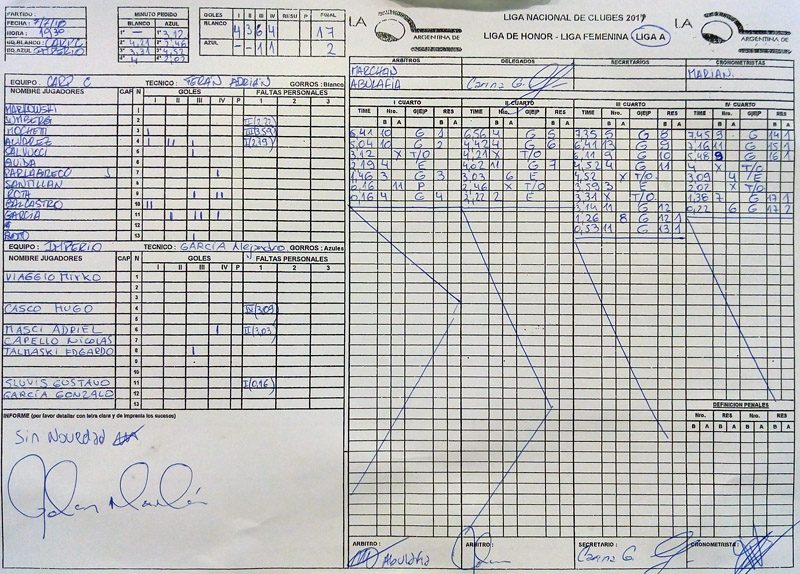 PARTIDO :
FECHA :
HORA : 1930
GO. BLANCO : CARP C
GO. AZUL : IMPERIO
MINUTO PEDIDO
BLANCO AZUL
1° — 1° 3,12
2° 4,21 2° 2,46
3° 3,31 3° 4,52
4° 4 4° 2,02
GOLES I II III IV RESU P FINAL
BLANCO 4 3 6 4 17
AZUL — — 1 1 2
LA
ARGENTINA DE
LIGA NACIONAL DE CLUBES 2017
LIGA DE HONOR - LIGA FEMENINA LIGA A
LA
ARGENTINA DE
EQUIPO : CARP C TECNICO : TERAN ADRIAN GORROS : Blanco
NOMBRE JUGADORES CAP N GOLES FALTAS PERSONALES
I II III IV P 1 2 3
MARKOWSKI 1
2 II(2,22)
MOCHETTI 3 III(3,59)
ALVAREZ 4 I(2,19)
5
6
7
SANTILLAN 8
ROTA 9
BALCASTRO 10
GARCIA 11
12
13
EQUIPO : IMPERIO TECNICO : GARCÍA Alejandro GORROS : Azules
NOMBRE JUGADORES CAP N GOLES FALTAS PERSONALES
I II III IV P 1 2 3
VIAGGIO MIRKO 1
2
3
CASCO HUGO 4 IV(3,09)
5
MASCI ADRIEL 6 II(3,03)
CAPELLO NICOLAS 7
TALMASKI EDGARDO 8
9
10
SLUVIS GUSTAVO 11 I(0,16)
GARCÍA GONZALO 12
13
INFORME (por favor detallar con letra clara y de imprenta los sucesos)
Sin Novedad
ARBITROS DELEGADOS SECRETARIOS CRONOMETRISTAS
MARCHAN MARIAN.
ABULAFIA Carina G.
I CUARTO
TIME Nro. G|E|P RES
B A B A
6,41 10 G 1
5,04 10 G 2
3,12 X T/O
2,19 4 E
1,46 3 G 3
0,16 11 P
0,16 4 G 4
II CUARTO
TIME Nro. G|E|P RES
B A B A
6,56 4 G 5
4,42 4 G 6
4,21 X T/O
4,02 11 G 7
3,03 6 E
2,46 X T/O
2,22 2 E
III CUARTO
TIME Nro. G|E|P RES
B A B A
7,35 5 G 8
6,41 13 G 9
6,11 9 G 10
4,52 4 G 11
4,52 X T/O
3,59 3 E
3,31 X T/O
3,14 11 G 12
1,26 8 G 12 1
0,53 11 G 13 1
IV CUARTO
TIME Nro. G|E|P RES
B A B A
7,45 9 G 14 1
7,16 11 G 15 1
5,48 9 G 16 1
4 X T/O
3,09 4 E
2,02 X T/O
1,38 7 G 17 1
0,22 6 G 17 2
DEFINICION PENALES
Nro. RES Nro. RES
B A B A B A B A
ARBITRO : Abulafia ARBITRO : SECRETARIO : Carina G. CRONOMETRISTA :